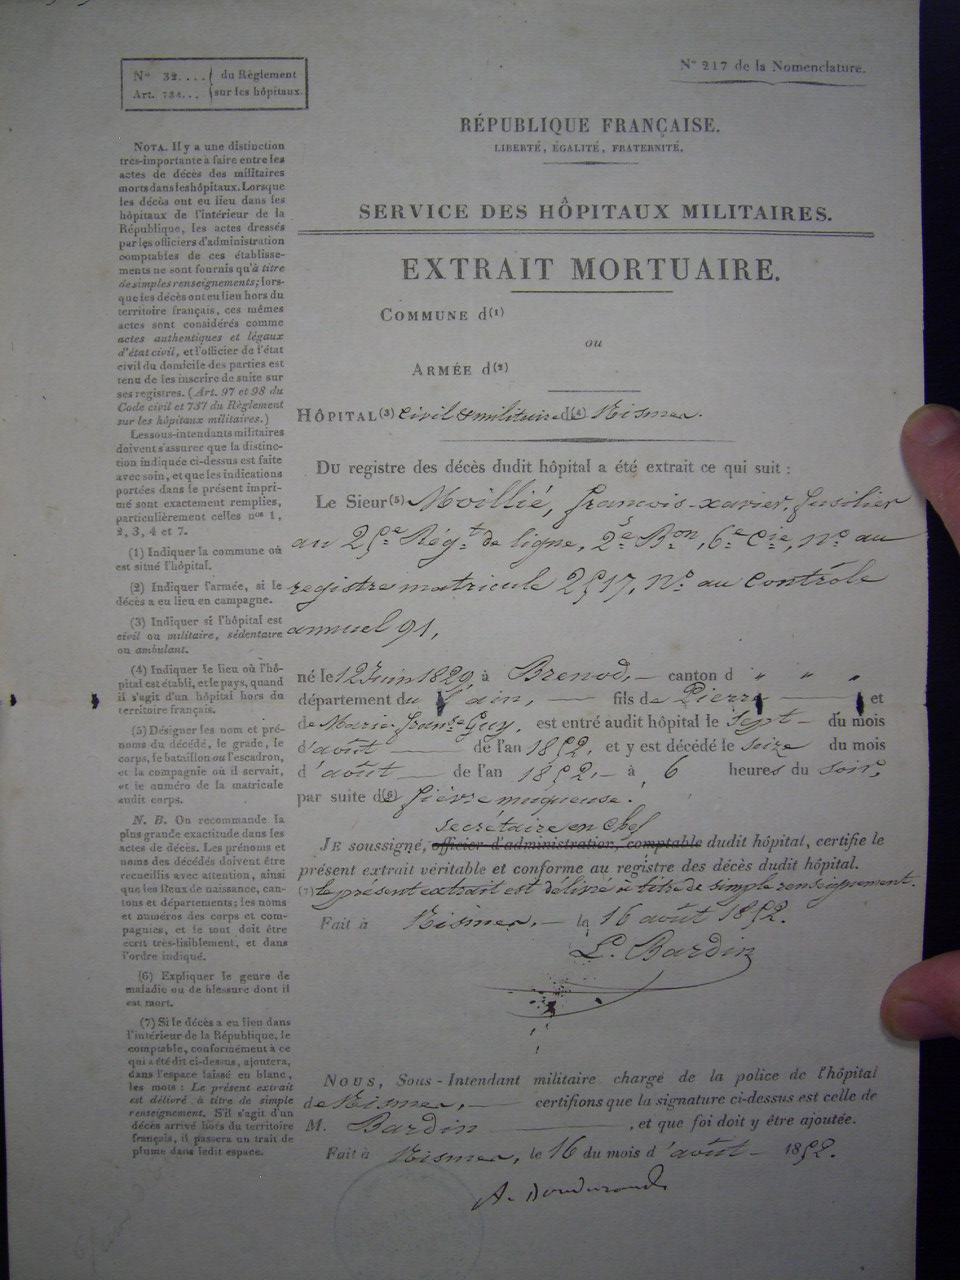 Nos 32.... du Règlement
Art. 724... sur les hôpitaux.
No 217 de la Nomenclature.
RÉPUBLIQUE FRANÇAISE.
LIBERTÉ, ÉGALITÉ, FRATERNITÉ.
SERVICE DES HÔPITAUX MILITAIRES.
EXTRAIT MORTUAIRE.
COMMUNE d(1)
ou
ARMÉE d(2)
HÔPITAL(3) Civil & militaire d(4) Nismes.
Du registre des décès dudit hôpital a été extrait ce qui suit :
Le Sieur(5) Moillié, françois-xavier, fusilier
au 25e Régt de ligne, 2e Bon, 6e Cie, No au
registre matricule 2517, No au Contrôle
annuel 91,
né le 12 Juin 1829 à Brenod, — canton d " " "
département du l'ain, — fils de Pierre — et
de Marie franse Guy, est entré audit hôpital le Sept — du mois
d'août — de l'an 1852, et y est décédé le seize du mois
d'août — de l'an 1852, — à 6 heures du soir,
par suite d(6) fièvre muqueuse.
secrétaire en chef
JE soussigné, officier d'administration, comptable dudit hôpital, certifie le
présent extrait véritable et conforme au registre des décès dudit hôpital.
(7) le présent extrait est délivré à titre de simple renseignement.
Fait à Nismes, — le 16 août 1852.
L. Bardin
NOUS, Sous-Intendant militaire chargé de la police de l'hôpital
de Nismes, — certifions que la signature ci-dessus est celle de
M. Bardin — , et que foi doit y être ajoutée.
Fait à Nismes, le 16 du mois d'août — 1852.
NOTA. Il y a une distinction
très-importante à faire entre les
actes de décès des militaires
morts dans les hôpitaux. Lorsque
les décès ont eu lieu dans les
hôpitaux de l'intérieur de la
République, les actes dressés
par les officiers d'administration
comptables de ces établisse-
ments ne sont fournis qu'à titre
de simples renseignements; lors-
que les décès ont eu lieu hors du
territoire français, ces mêmes
actes sont considérés comme
actes authentiques et légaux
d'état civil, et l'officier de l'état
civil du domicile des parties est
tenu de les inscrire de suite sur
ses registres. (Art. 97 et 98 du
Code civil et 737 du Règlement
sur les hôpitaux militaires.)
Les sous-intendants militaires
doivent s'assurer que la distinc-
tion indiquée ci-dessus est faite
avec soin, et que les indications
portées dans le présent impri-
mé sont exactement remplies,
particulièrement celles nos 1,
2, 3, 4 et 7.
(1) Indiquer la commune où
est situé l'hôpital.
(2) Indiquer l'armée, si le
décès a eu lieu en campagne.
(3) Indiquer si l'hôpital est
civil ou militaire, sédentaire
ou ambulant.
(4) Indiquer le lieu où l'hô-
pital est établi, et le pays, quand
il s'agit d'un hôpital hors du
territoire français.
(5) Désigner les nom et pré-
noms du décédé, le grade, le
corps, le bataillon ou l'escadron,
et la compagnie où il servait,
et le numéro de la matricule
audit corps.
N. B. On recommande la
plus grande exactitude dans les
actes de décès. Les prénoms et
noms des décédés doivent être
recueillis avec attention, ainsi
que les lieux de naissance, can-
tons et départements; les noms
et numéros des corps et com-
pagnies, et le tout doit être
écrit très-lisiblement, et dans
l'ordre indiqué.
(6) Expliquer le genre de
maladie ou de blessure dont il
est mort.
(7) Si le décès a eu lieu dans
l'intérieur de la République, le
comptable, conformément à ce
qui a été dit ci-dessus, ajoutera,
dans l'espace laissé en blanc,
les mots : Le présent extrait
est délivré à titre de simple
renseignement. S'il s'agit d'un
décès arrivé hors du territoire
français, il passera un trait de
plume dans ledit espace.